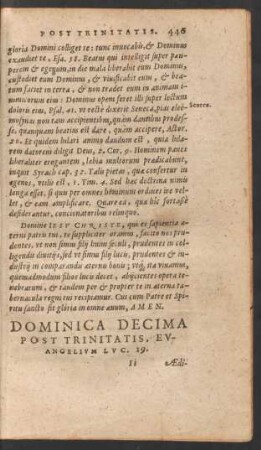 POST TRINITATIS. 446
gloria Domini colliget te: tunc inuocabis, & Dominus
exaudiet te, Esa. 58. Beatus qui intelligit super pau-
perem & egenum, in die mala liberabit eum Dominus,
custodiet eum Dominus, & viuificabit eum, & bea-
tum faciet in terra, & non tradet eum in animam
inimicorum eius: Dominus opem feret illi super lectum
doloris eius, Psal. 41. vt rectè dixerit Seneca, pias elee-
Seneca.
mosynas non tam accipientibus, quàm dantibus prodes-
se. quanquam beatius est dare, quàm accipere, Actor.
20. Et quidem hilari animo dandum est, quia hila-
rem datorem diligit Deus, 2. Cor. 9. Dominum panes
liberaliter erogantem, labia multorum prædicabunt,
inquit Syrach cap. 31. Talis pietas, quæ confertur in
egenos, vtilis est, 1. Tim. 4. Sed hæc doctrina nimis
longa esset, si quis per omnes homini ordines ire vel-
let, & eam amplificare. Quare ea, quæ hîc fortasse
desiderantur, concionatoribus relinquo.
Domine IESV CHRISTE, qui es sapientia æ-
terni patris tui, te suppliciter oramus, facito nos pru-
dentes, vt non simus filij huius seculi, prudentes in col-
ligendis diuitijs, sed vt simus filij lucis, prudentes & in-
dustrij in comparandis æternis bonis; vtq́; ita viuamus,
quemadmodum filios lucis decet, abijcientes opera te-
nebrarum, & tandem per & propter te in æterna ta-
bernacula regni tui recipiamur. Cui cum Patre et Spi-
ritu sancto sit gloria in omne æuum, AMEN.
DOMINICA DECIMA
POST TRINITATIS, EV-
ANGELIVM LVC. 19.
Ii Ædi-